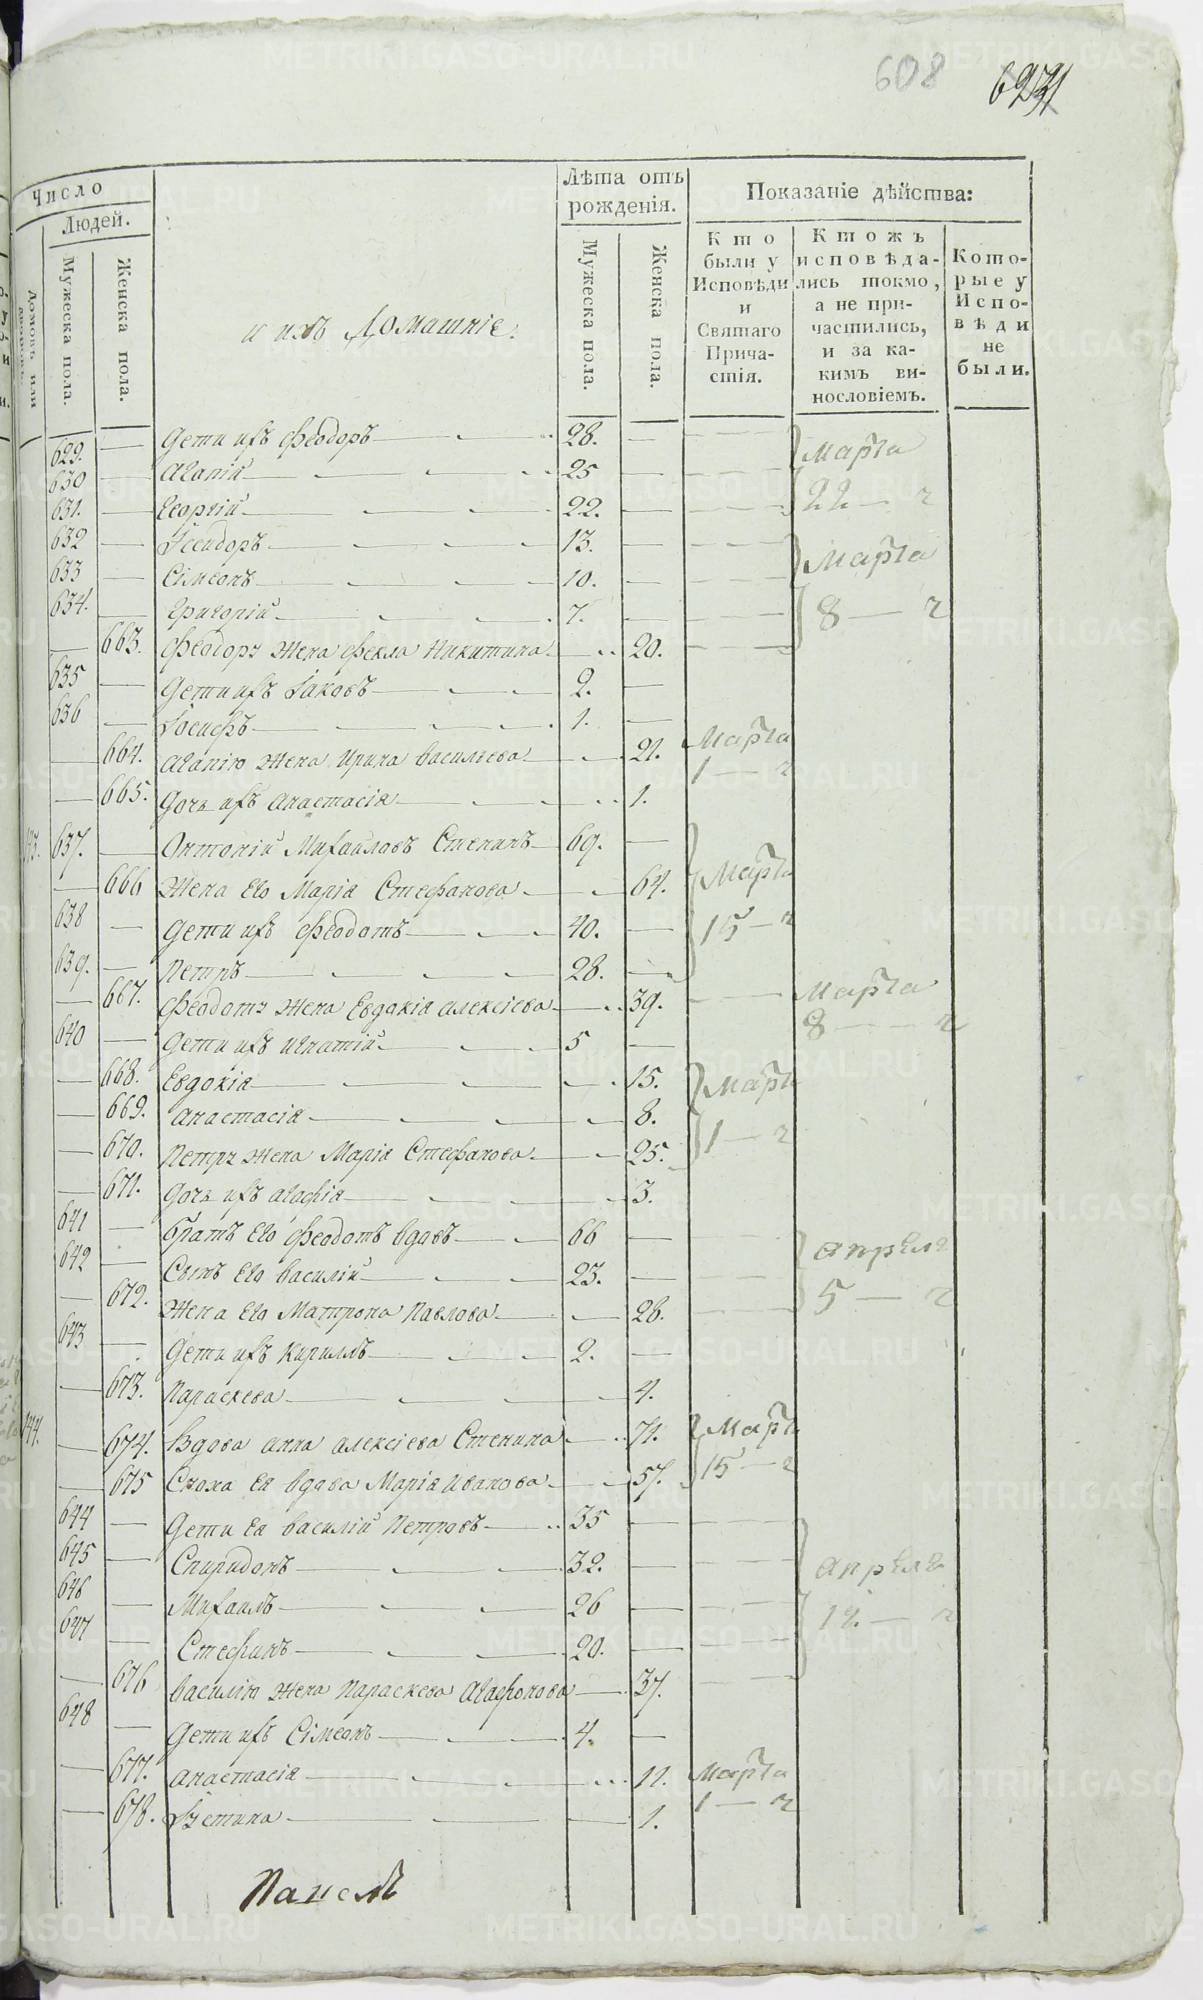 608
Число
Людей.
Домовъ или
Мужеска пола.
Женска пола.
и ихъ Домашніе.
Лѣта отъ
рожденія.
Мужеска пола.
Женска пола.
Показаніе дѣйства:
Кто
были у
Исповѣди
и
Святаго
Прича-
стія.
Ктожъ
исповѣда-
лись токмо,
а не при-
частились,
и за ка-
кимъ ви-
нословіемъ.
Кото-
рые у
Испо-
вѣди
не
были.
629. Дети ихъ Феодоръ 28. Марта
630 Агапій 25
631. Георгій 22. 22 ч
632 Ісидоръ 13.
633 Сімеонъ 10. Марта
634. Григорій 7. 8 ч
663. Феодору жена Фекла Никитина 20.
635 Дети ихъ Іаковъ 2.
636 Іосифъ 1.
664. Агапію жена Ирина Васильева 21. Марта
665. Дочь ихъ Анастасія 1. 1 ч
637. Антоній Михаиловъ Стенинъ 69.
666 Жена Его Марія Стефанова 64. Марта
638 Дети ихъ Феодотъ 40. 15 ч
639. Петръ 28.
667. Феодоту жена Евдокія Алексіева 39. Марта
640 Дети ихъ Игнатій 5 8 ч
668. Евдокія 15. Марта
669. Анастасія 8.
670. Петру жена Марія Стефанова 25. 1 ч
671. Дочь ихъ Агафія 3.
641 братъ Его Феодотъ вдовъ 66 Апреля
642 Сынъ Его Василій 23.
672. Жена Его Матрона Павлова 28. 5 ч
643 Дети ихъ Кириллъ 2.
673. Параскева 4.
674. Вдова Анна Алексіева Стенина 71. Марта
675 Сноха Ея вдова Марія Иванова 57. 15 ч
644 Дети Ея Василій Петровъ 35
645 Спиридонъ 32. Апреля
646 Михаилъ 26 12 ч
647 Стефанъ 20.
676 Василію жена Параскева Агафонова 37.
648 Дети ихъ Сімеонъ 4.
677. Анастасія 11. Марта
678. Іустина 1. 1 ч